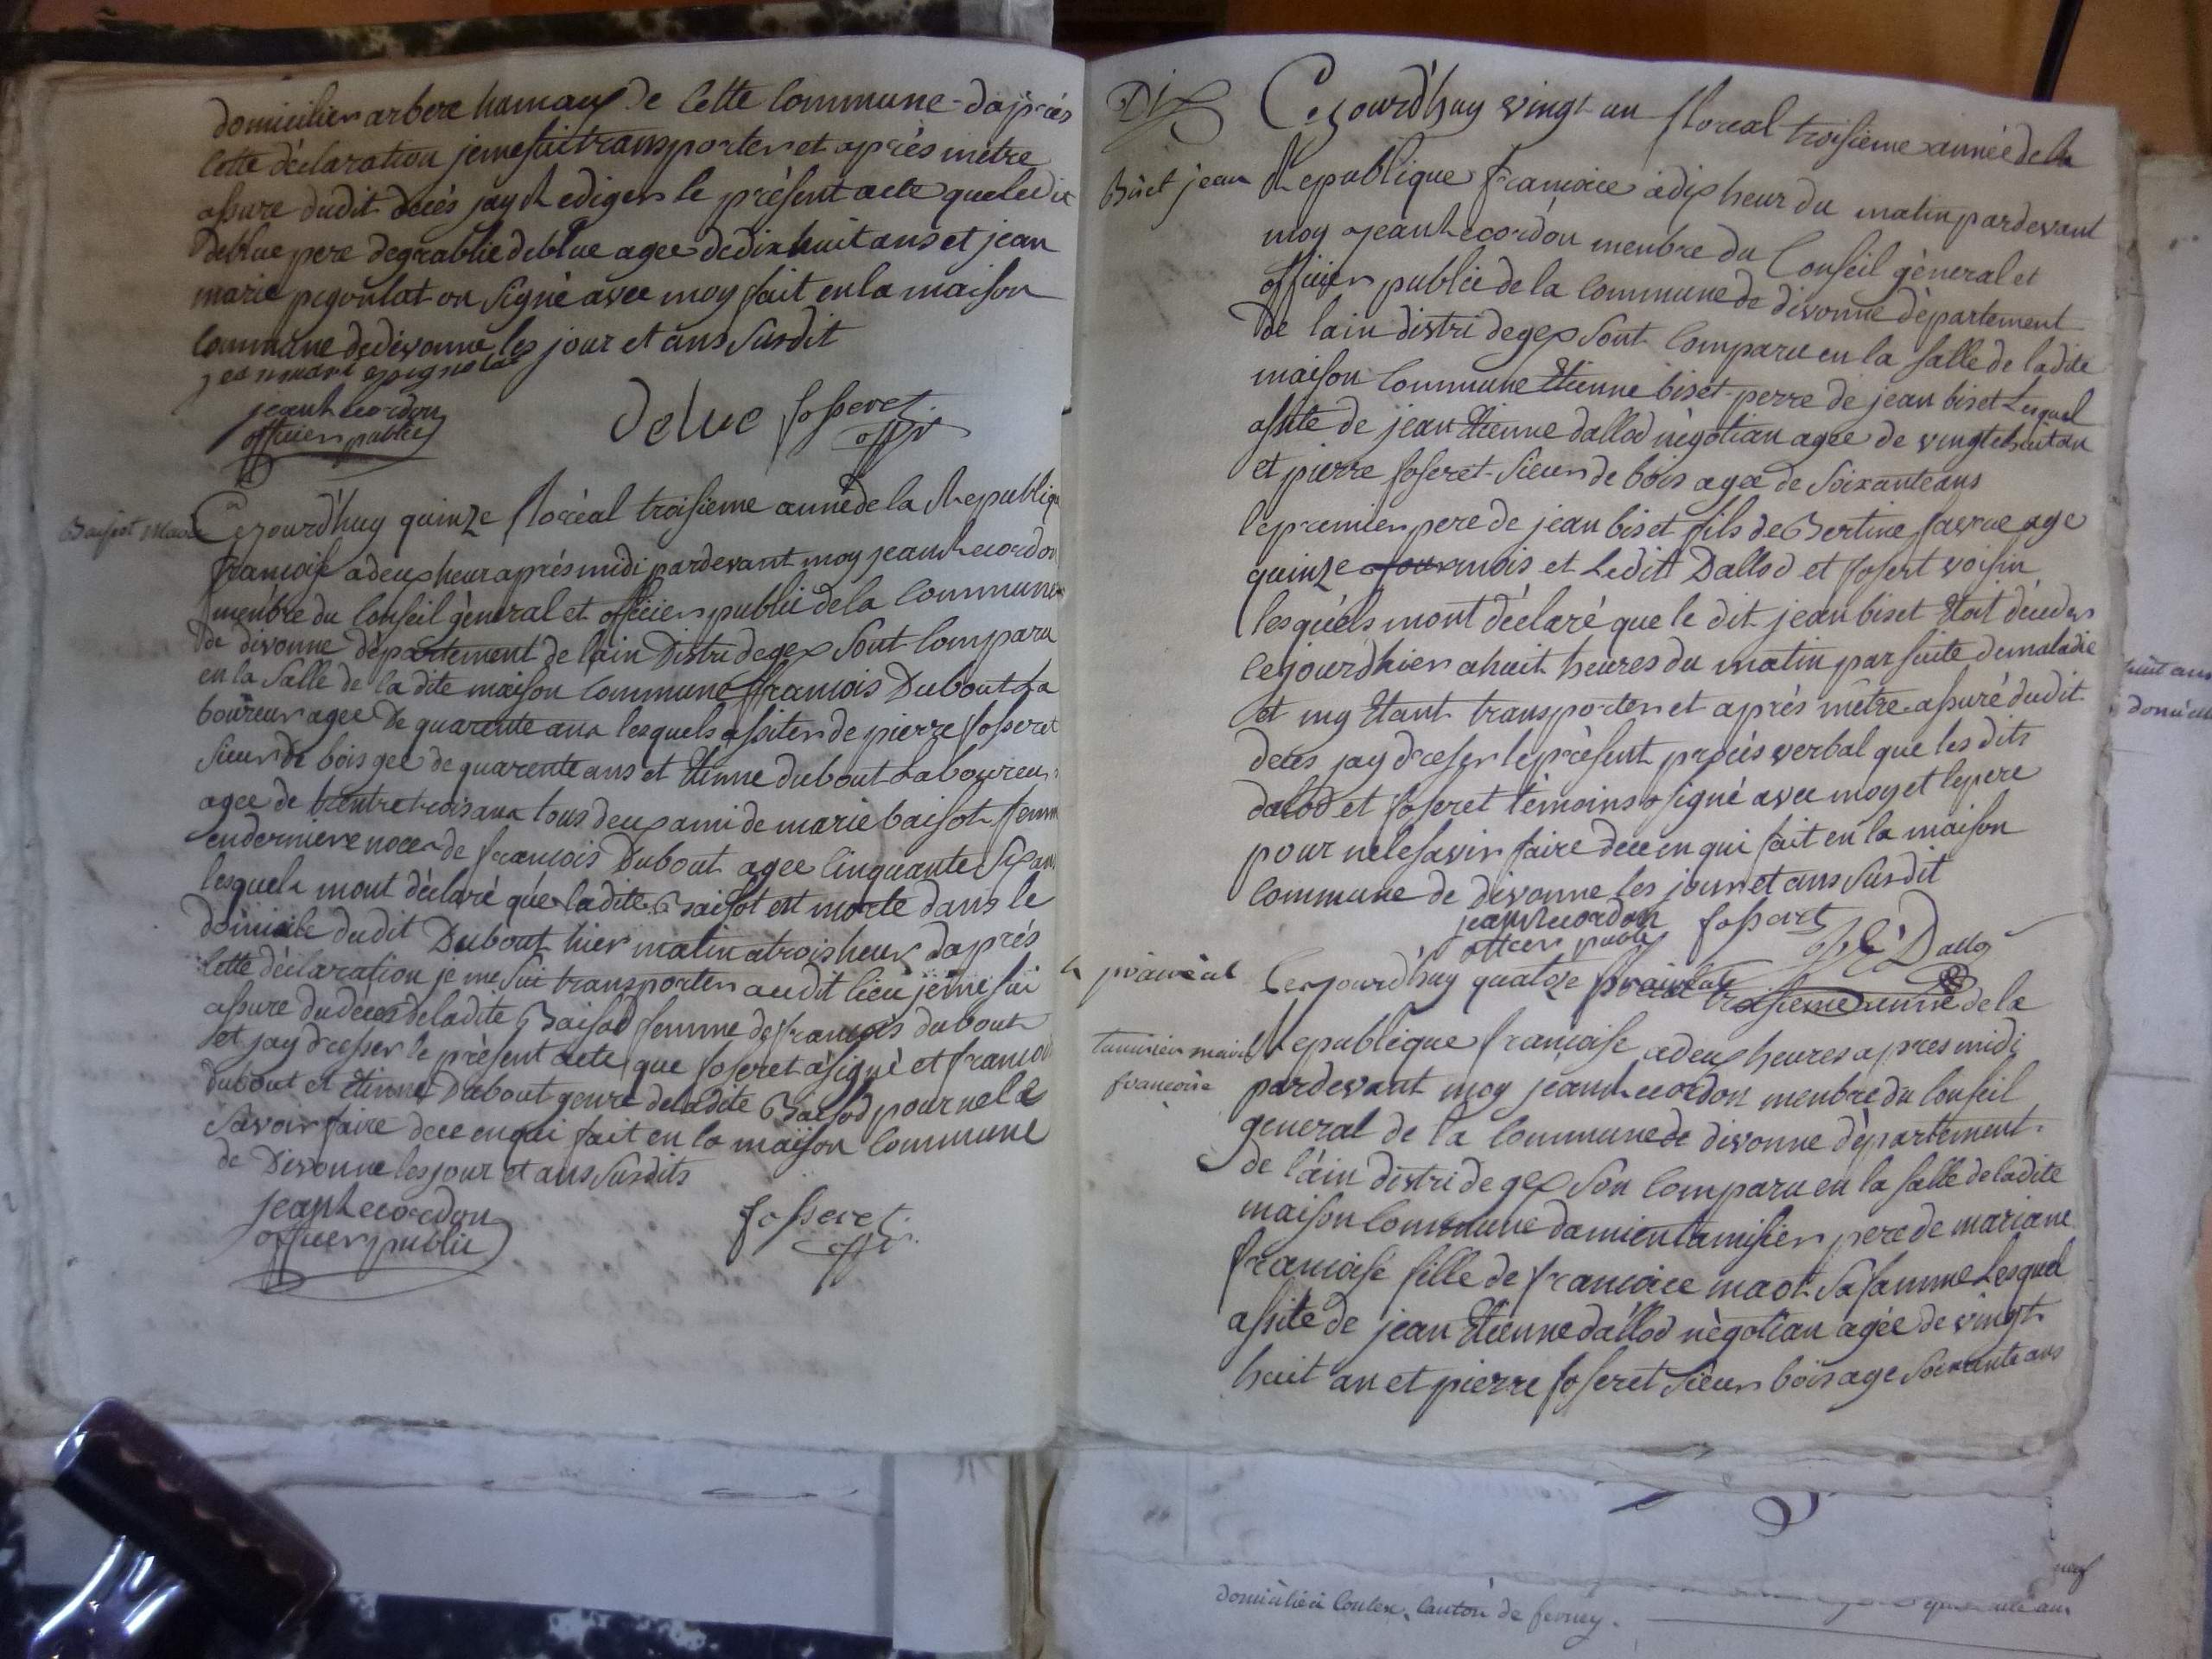 domicilier arbere hamaux de Cette Commune d'après
Cette déclaration je me sui transporter et après mêtre
assure dudit decès jay Rediger le présent acte que ledit
deblue pere degrablie deblue agee de dix huit ans et jean
marie pegoulat on Signé avec moy fait en la maison
Commune de devonne les jour et ans Susdit
jean Recordon
officier public
deluc fosseret
offr
Baisot Marie
Cejourd'huy quinze floréal troisieme année de la Republique
francoise a deux heur après midi pardevant moy jean Recordon
menbre du Conseil gèneral et officier public de la Commune
de divonne département de lain Distri de gex Sont Comparu
en la Salle de la dite maison Commune francois Dubout La
boureur agee de quarente ans lesquels assiter de pierre fosseret
Sieur de bois gee de quarente ans et Etienne dubout Laboureur
agee de trentre trois ans tous deux ami de marie baisot femme
en derniere noces de francois Dubout agee Cinquante Six ans
lesquels mont déclaré que ladite Baisot est morte dans le
domicile dudit Dubout hier matin a trois heur d'après
Cette déclaration je me sui transporter audit lieu je me sui
assure du deces de ladite Baisod femme de francois dubout
et jay dresser le présent acte que foseret a signé et francois
dubout et Etienne Dubout genre de ladite Baisod pour ne le
Savoir faire de ce enqui fait en la maison Commune
de Divonne les jour et ans Susdits
jean Recordon
officier public
fosseret
offr
Dix
Cejourd'huy vingt un floreal troisieme année de la
Biset jean
Republique francoice a dix heur du matin pardevant
moy jean Recordon menbre du Conseil gèneral et
officier public de la Commune de divonne département
de lain distri de gex Sont Comparu en la Salle de ladite
maison Commune Etienne biset perre de jean biset Lesquel
assite de jean Etienne dallod nègotian agee de vingt huit an
et pierre foseret Sieur de bois agee de Soixante ans
le premier pere de jean biset fils de Bertine favrae age
quinze mois et Ledit Dallod et fosert voisin
lesquels mont déclaré que le dit jean biset Etoit déceder
le jourd'hier a huit heures du matin par suite de maladie
et my Etant transporter et après mêtre assuré dudit
deces jay dreser le présent procès verbal que les dits
dalod et foseret temoins signé avec moy et le pere
pour ne le savoir faire de ce en qui fait en la maison
Commune de divonne les jour et ans Susdit
jean Recordon fossert
officer public
J E Dallod
prairéal
Cejourd'huy quatoze prairéal troisieme année de la
tamisier marie
francoise
Republique francoise a deux heures apres midi
pardevant moy jean Recordon menbre du Conseil
general de la Commune de divonne département
de l'ain distri de gex Son Comparu en la Salle de ladite
maison Commune damien tamisier pere de mariane
francoise fille de francoice maot Sa famme Lesquel
assite de jean Etienne dallod nègotian agée de vingt
huit an et pierre foseret Sieur bois age Soixante ans
huit ans
domicili
neuf
domicilié à Coulex, Canton de ferney.